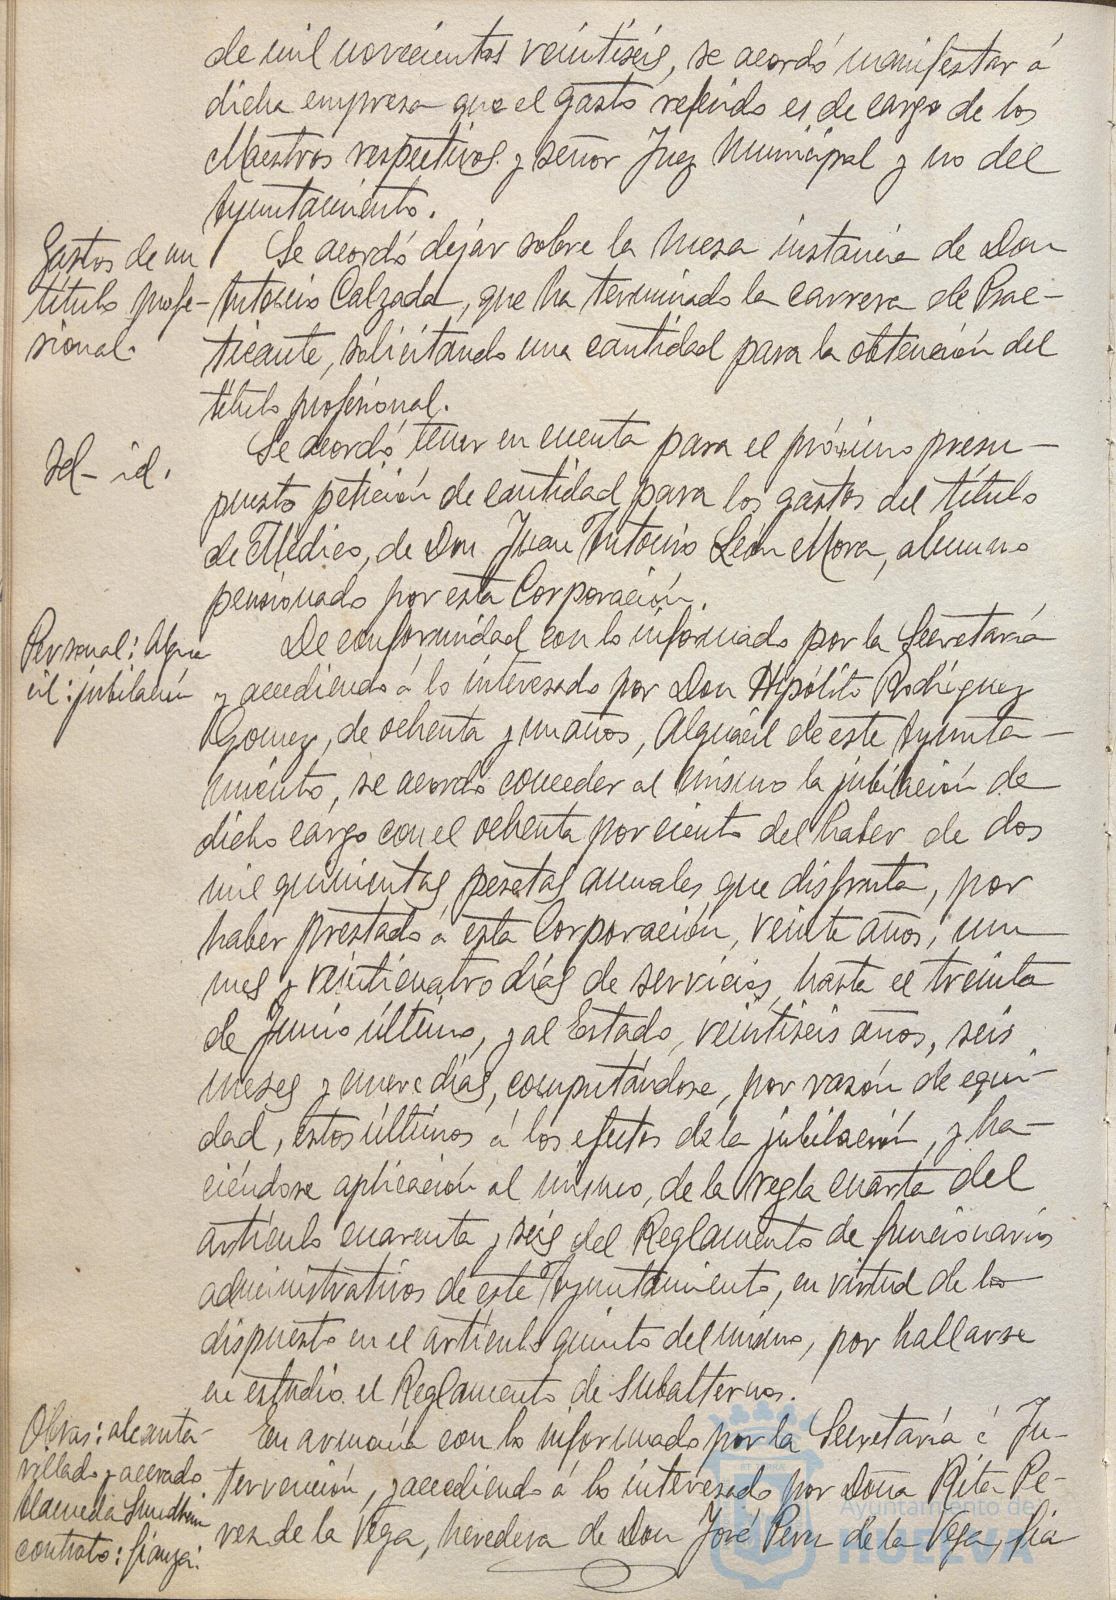 de mil novecientos veintiseis, se acordó manifestar á
dicha empresa que el gasto referido es de cargo de los
Maestros respectivos y señor Juez Municipal y no del
Ayuntamiento.
Gastos de un
título profe-
sional.
Se acordó dejar sobre la mesa instancia de Don
Antonio Calzada, que ha terminado la carrera de Prac-
ticante, solicitando una cantidad para la obtención del
título profesional.
Id - id.
Se acordó tener en cuenta para el próximo presu-
puesto petición de cantidad para los gastos del título
de Médico, de Don Juan Antonio León Mora, alumno
pensionado por esta Corporación.
Personal: Algua
cil: jubilación
De conformidad con lo informado por la Secretaría
y accediendo á lo interesado por Don Hipólito Rodríguez
Gomez, de ochenta y un años, Alguacil de este Ayunta-
miento, se acordó conceder al mismo la jubilación de
dicho cargo con el ochenta por ciento del haber de dos
mil quinientas pesetas anuales que disfruta, por
haber prestado á esta Corporación, veinte años, un
mes y veinticuatro días de servicios, hasta el treinta
de Junio último, y al Estado, veintiseis años, seis
meses y nueve días, computándose, por razón de equi-
dad, éstos últimos á los efectos de la jubilación, y ha-
ciéndose aplicación al mismo, de la regla cuarta del
artículo cuarenta y seis del Reglamento de funcionarios
administrativos de este Ayuntamiento, en virtud de lo
dispuesto en el artículo quinto del mismo, por hallarse
en estudio el Reglamento de Subalternos.
Obras: alcanta-
rillado y acerado
Alameda Sundheim
contrato: fianza:
En armonía con lo informado por la Secretaría é In-
tervención, y accediendo á lo interesado por Doña Rita Pe-
rez de la Vega, heredera de Don José Perez de la Vega, fia
Ayuntamiento de
HUELVA